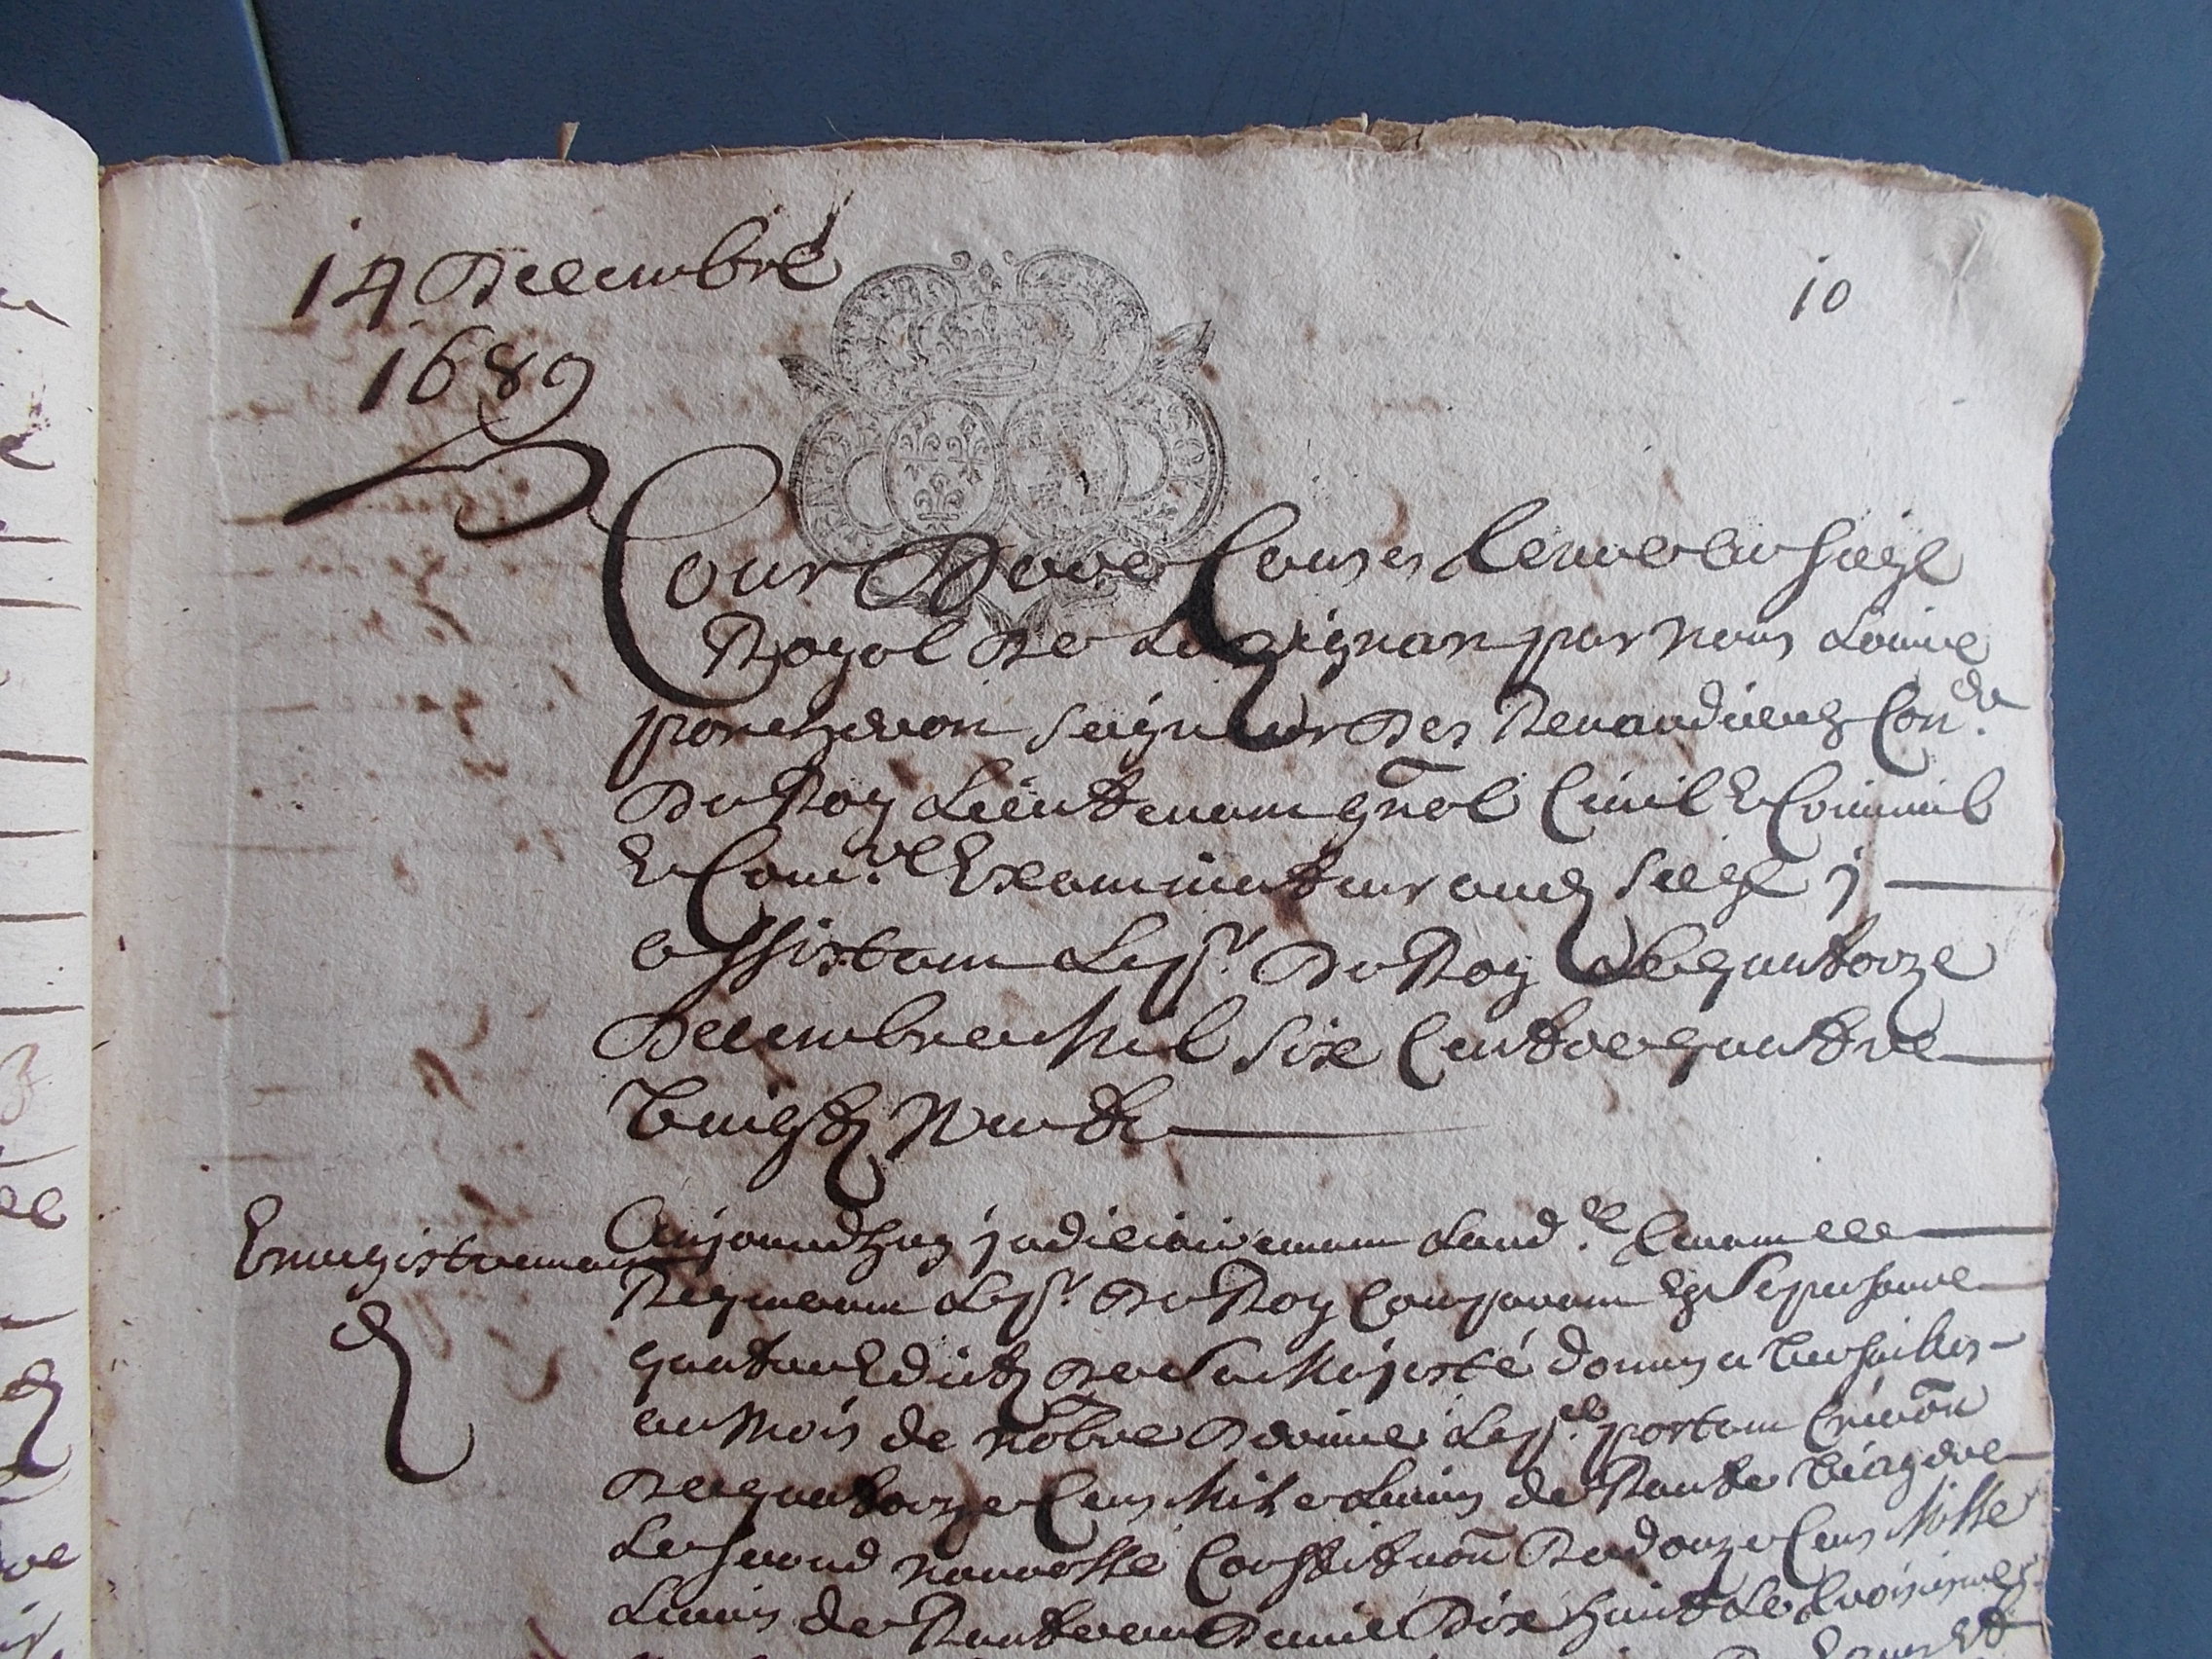 14 Decembre
1689
10
Cour Des Causes tenue au siege
Royal De Lusignan par nous Louis
porcheron seigneur Des Con.er
Du Roy Lieutenant gnāl Civil & Criminel
& Com.re Examinateur aud siege
assistant Le pr. Du Roy Le quatorze
Decembre Mil Six Cent quatre
vingt Neufz
Enregistrement
Aujourdhuy judiciairement Laud.ce tenant
Requerant Le pr. Du Roy Comparant
quatre Edictz De Sa Majesté donnes a Versailles
au Mois de nōbre Dernier Le p.er portant Creāon
De quatorze Cens Mil Livres de Rente viagere
Le second nouvelle Constituōn De douze Cens Mille
Livres de Rente au Denier Dix huict Le troisiesme